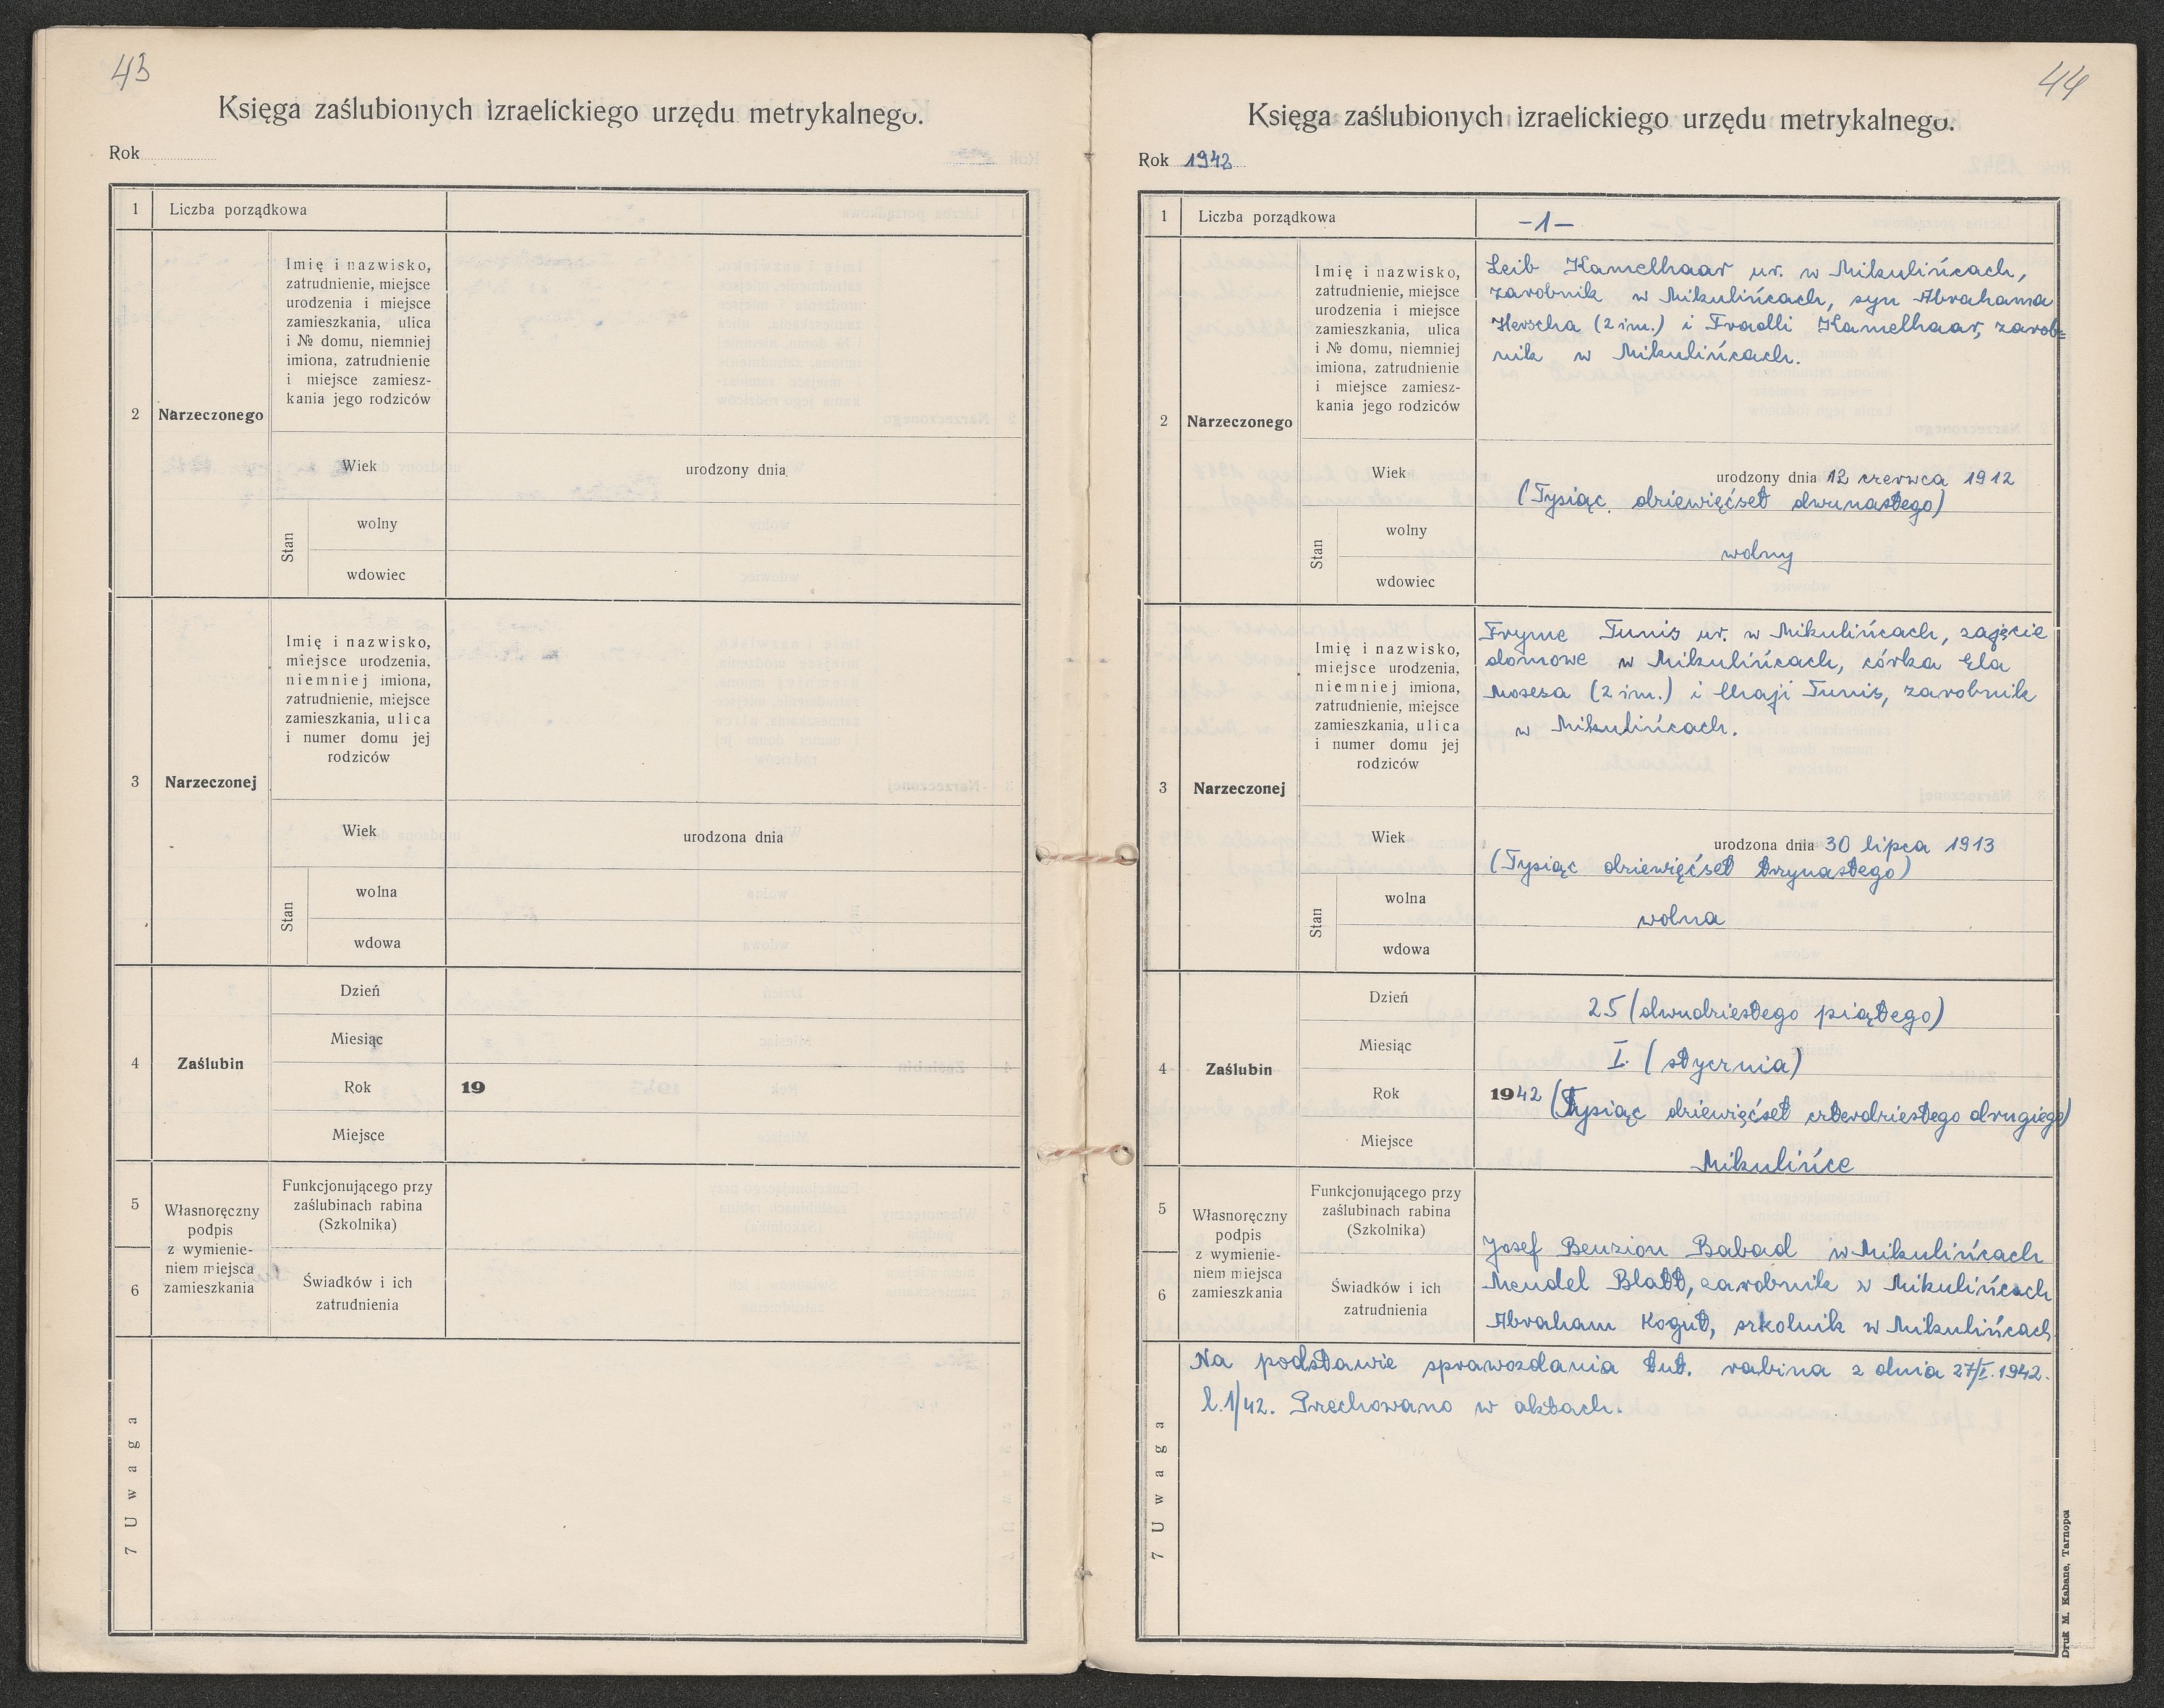 43
Księga zaślubionych izraelickiego urzędu metrykalnego.
Rok
1
Liczba porządkowa
2
Narzeczonego
Imię i nazwisko,
zatrudnienie, miejsce
urodzenia i miejsce
zamieszkania, ulica
i № domu, niemniej
imiona, zatrudnienie
i miejsce zamiesz-
kania jego rodziców
Wiek
urodzony dnia
Stan
wolny
wdowiec
3
Narzeczonej
Imię i nazwisko,
miejsce urodzenia,
niemniej imiona,
zatrudnienie, miejsce
zamieszkania, ulica
i numer domu jej
rodziców
Wiek
urodzona dnia
Stan
wolna
wdowa
4
Zaślubin
Dzień
Miesiąc
Rok
19
Miejsce
5
6
Własnoręczny
podpis
z wymienie-
niem miejsca
zamieszkania
Funkcjonującego przy
zaślubinach rabina
(Szkolnika)
Świadków i ich
zatrudnienia
7 Uwaga
44
Księga zaślubionych izraelickiego urzędu metrykalnego.
Rok 1942
1
Liczba porządkowa
-1-
2
Narzeczonego
Imię i nazwisko,
zatrudnienie, miejsce
urodzenia i miejsce
zamieszkania, ulica
i № domu, niemniej
imiona, zatrudnienie
i miejsce zamiesz-
kania jego rodziców
Leib Kamelhaar ur. w Mikulińcach,
zarobnik w Mikulińcach, syn Abrahama
Herscha (2 im.) i Fradli Kamelhaar, zarob=
nik w Mikulińcach.
Wiek
urodzony dnia 12 czerwca 1912
(Tysiąc dziewięćset dwunastego)
Stan
wolny
wdowiec
wolny
3
Narzeczonej
Imię i nazwisko,
miejsce urodzenia,
niemniej imiona,
zatrudnienie, miejsce
zamieszkania, ulica
i numer domu jej
rodziców
Fryme Tunis ur. w Mikulińcach, zajęcie
domowe w Mikulińcach, córka Ela
Mosesa (2 im.) i Chaji Tunis, zarobnik
w Mikulińcach.
Wiek
urodzona dnia 30 lipca 1913
(Tysiąc dziewięćset trzynastego)
Stan
wolna
wdowa
wolna
4
Zaślubin
Dzień
25 (dwudziestego piątego)
Miesiąc
I. (stycznia)
Rok
1942 (Tysiąc dziewięćset czterdziestego drugiego)
Miejsce
Mikulińce
5
6
Własnoręczny
podpis
z wymienie-
niem miejsca
zamieszkania
Funkcjonującego przy
zaślubinach rabina
(Szkolnika)
Josef Benzion Babad w Mikulińcach
Świadków i ich
zatrudnienia
Mendel Blatt, zarobnik w Mikulińcach
Abraham Kogut, szkolnik w Mikulińcach
7 Uwaga
Na podstawie sprawozdania tut. rabina z dnia 27/I.1942.
l.1/42. Przechowano w aktach.
Druk M. Kahane, Tarnopol